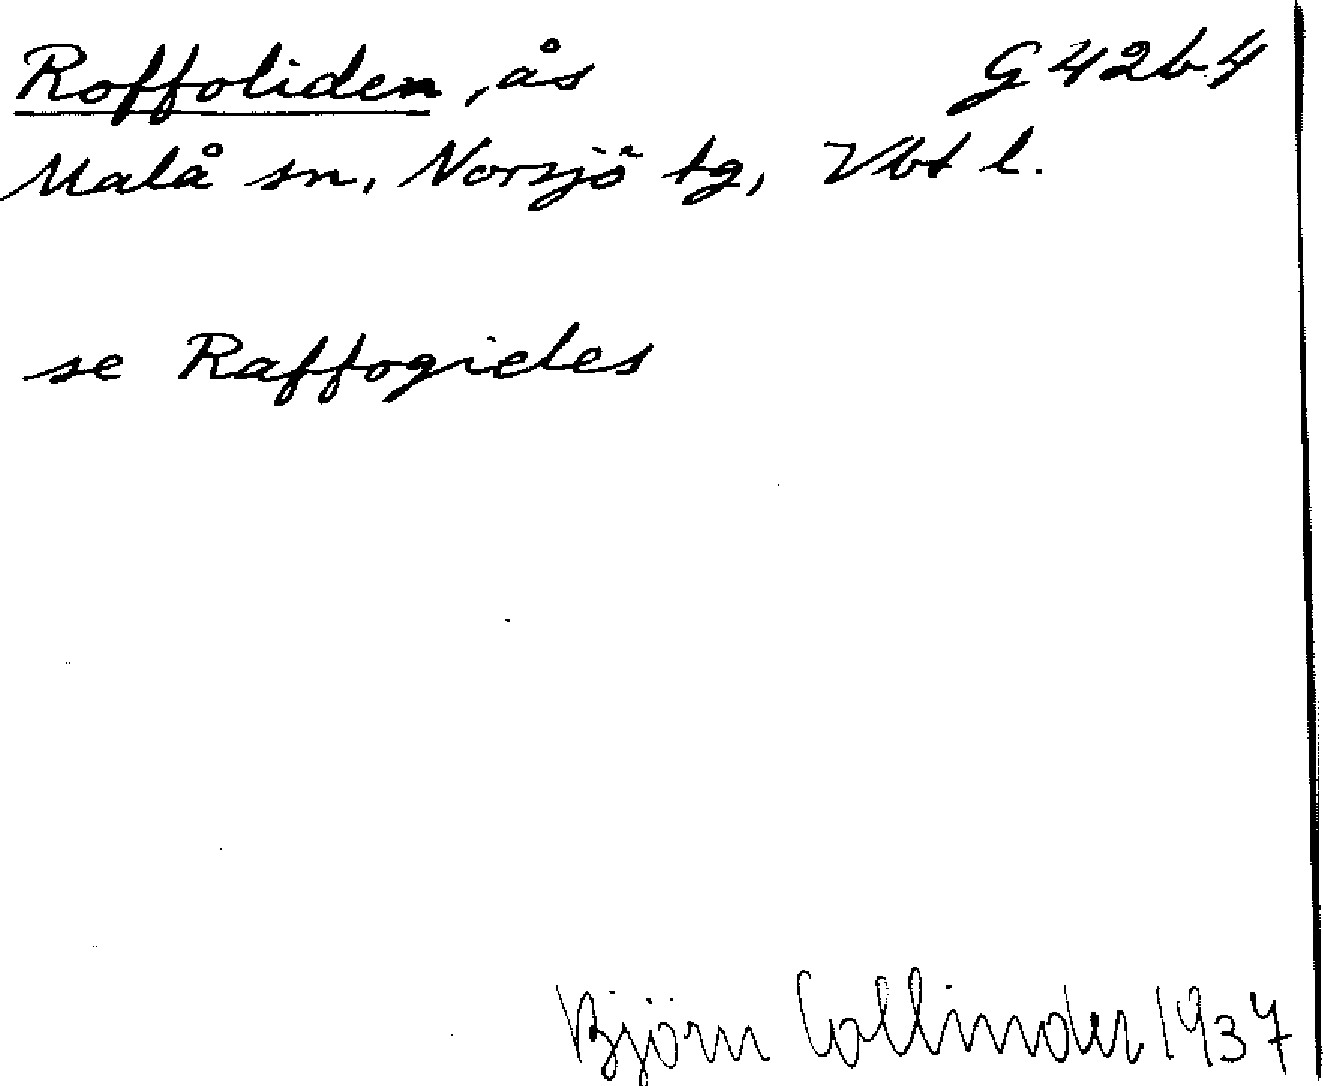 Roffoliden, ås G42b4
Malå sn, Norsjö tg, Vbt l.
se Raffogieles
Björn Collinder 1937